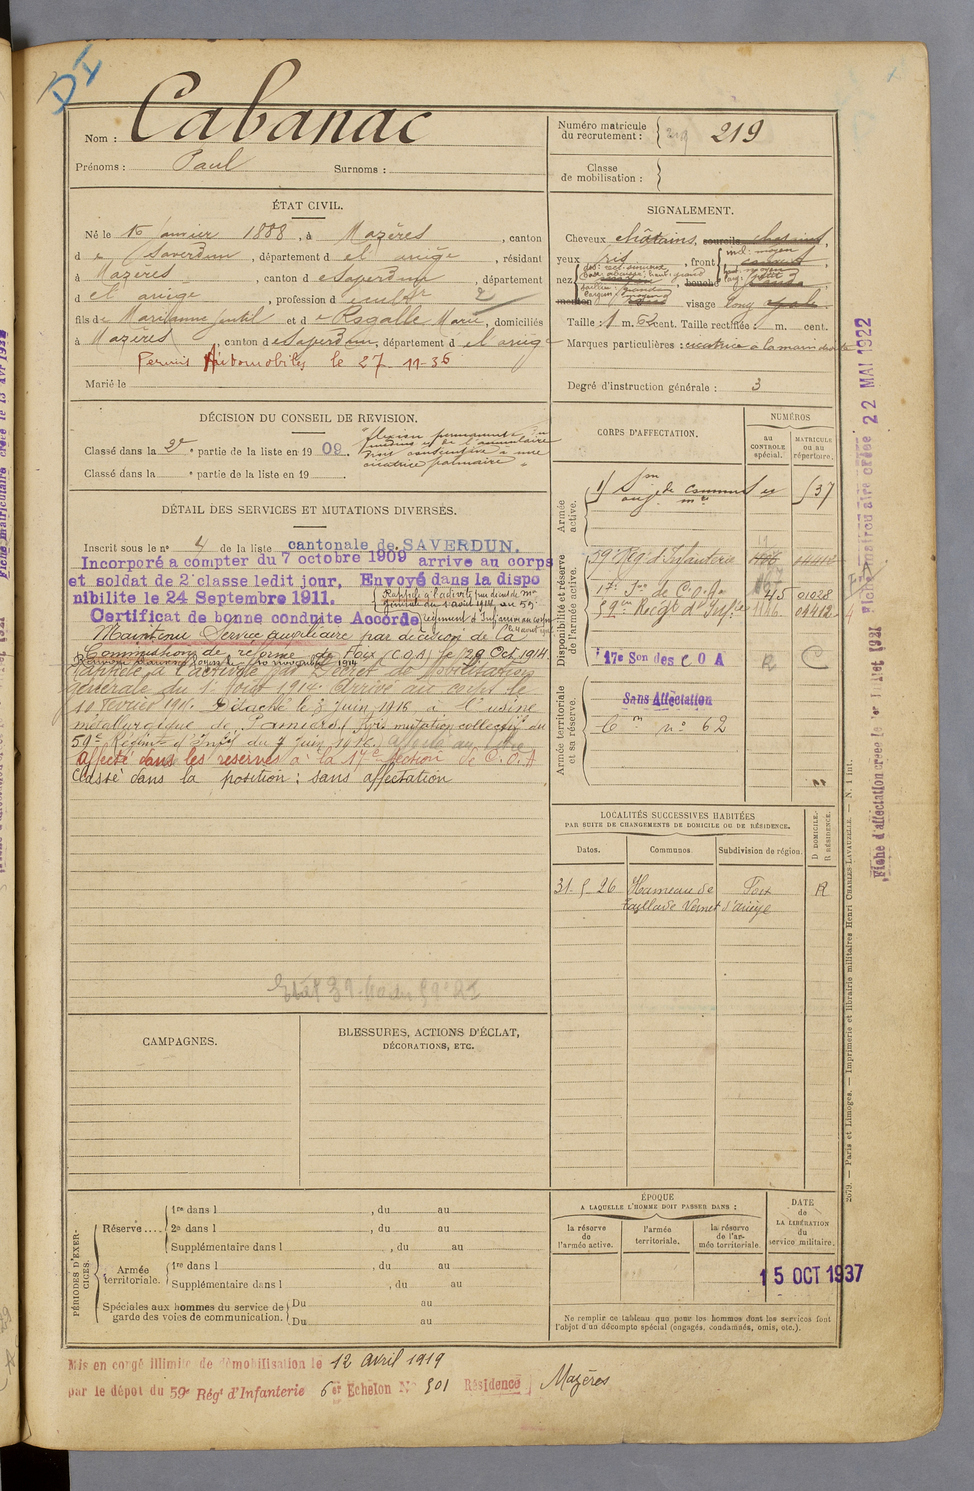 DI
Nom : Cabanac
Prénoms : Paul Surnoms :
Numéro matricule
du recrutement : 219 219
Classe
de mobilisation :
ÉTAT CIVIL.
Né le 16 janvier 1888, à Mazères, canton
de Saverdun, département de l'ariège, résidant
à Mazères, canton de Saverdun, département
de l'ariège, profession de 2
fils de Gentil et de Rogalle Marie, domiciliés
à Mazères, canton de Saverdun, département de l'ariège
Permis Automobiles le 27-11-36
Marié le
SIGNALEMENT.
Cheveux châtains, sourcils châtains,
yeux gris, front moyen
nez bouche
menton visage long ovale.
Taille : 1 m. 62 cent. Taille rectifiée : m. cent.
Marques particulières : cicatrice à la main droite
Degré d'instruction générale : 3
DÉCISION DU CONSEIL DE REVISION.
Classé dans la 2e partie de la liste en 1909.
flexion permanente du
medius et de l'annulaire
droit consécutive à une
cicatrice palmaire
Classé dans la e partie de la liste en 19
DÉTAIL DES SERVICES ET MUTATIONS DIVERSES.
Inscrit sous le no 4 de la liste cantonale de SAVERDUN.
Incorporé a compter du 7 octobre 1909 arrive au corps
et soldat de 2e classe ledit jour, Envoyé dans la dispo
nibilite le 24 Septembre 1911.
Rappelé à l'activité par décret de Mon
Général du 1 août 1914, au 59e
Certificat de bonne conduite Accordé
Régiment d'Inf arrivé au corps
Maintenu Service auxiliaire par décision de la
Commission de réforme de Foix (C.O.A) le 29 Oct 1914
Rappelé à l'activité par Décret de Mobilisation
générale du 1er Août 1914. Arrivé au corps le
10 février 1916. Détaché le 8 Juin 1916 à l'usine
métallurgique de Pamiers (Avis mutation collectif du
59e Régiment d'Inf du 7 Juin 1916.
Affecté dans les reserves à la 17e Section de C.O.A
Classé dans la position : sans affectation
CORPS D'AFFECTATION.
NUMÉROS
au
CONTROLE
spécial.
MATRICULE
ou au
répertoire.
Armée
active.
Disponibilité et réserve
de l'armée active.
59e Régt d'Infanterie
17e Son de C.O.A. 45 01028
59ème Régt d'Infie 1186. 04412
17e Son des C O A R C
Armée territoriale
et sa réserve.
Sans Affectation
Cm no 62
LOCALITÉS SUCCESSIVES HABITÉES
PAR SUITE DE CHANGEMENTS DE DOMICILE OU DE RÉSIDENCE.
D DOMICILE.
R RÉSIDENCE.
Dates. Communes. Subdivision de région.
31-5-26 Hameau de Foix R
Taillade Vernet d'Ariège
CAMPAGNES.
BLESSURES, ACTIONS D'ÉCLAT,
DÉCORATIONS, ETC.
PÉRIODES D'EXER-
CICES.
Réserve....
1re dans l , du au
2e dans l , du au
Supplémentaire dans l , du au
Armée
territoriale.
1re dans l , du au
Supplémentaire dans l , du au
Spéciales aux hommes du service de
garde des voies de communication.
Du au
Du au
ÉPOQUE
A LAQUELLE L'HOMME DOIT PASSER DANS :
la réserve
de
l'armée active.
l'armée
territoriale.
la réserve
de l'ar-
mée territoriale.
DATE
de
LA LIBÉRATION
du
service militaire.
15 OCT 1937
Ne remplir ce tableau que pour les hommes dont les services font
l'objet d'un décompte spécial (engagés, condamnés, omis, etc.).
Mis en congé illimité de démobilisation le 12 avril 1919
par le dépot du 59e Régt d'Infanterie 6er Echelon No 301 Résidence Mazères
2679. — Paris et Limoges. — Imprimerie et librairie militaires Henri CHARLES-LAVAUZELLE. — N. 1 int.
Fiche d'affectation créée le 1er Juillet 1921
Fiche matriculaire créée 22 MAI 1922